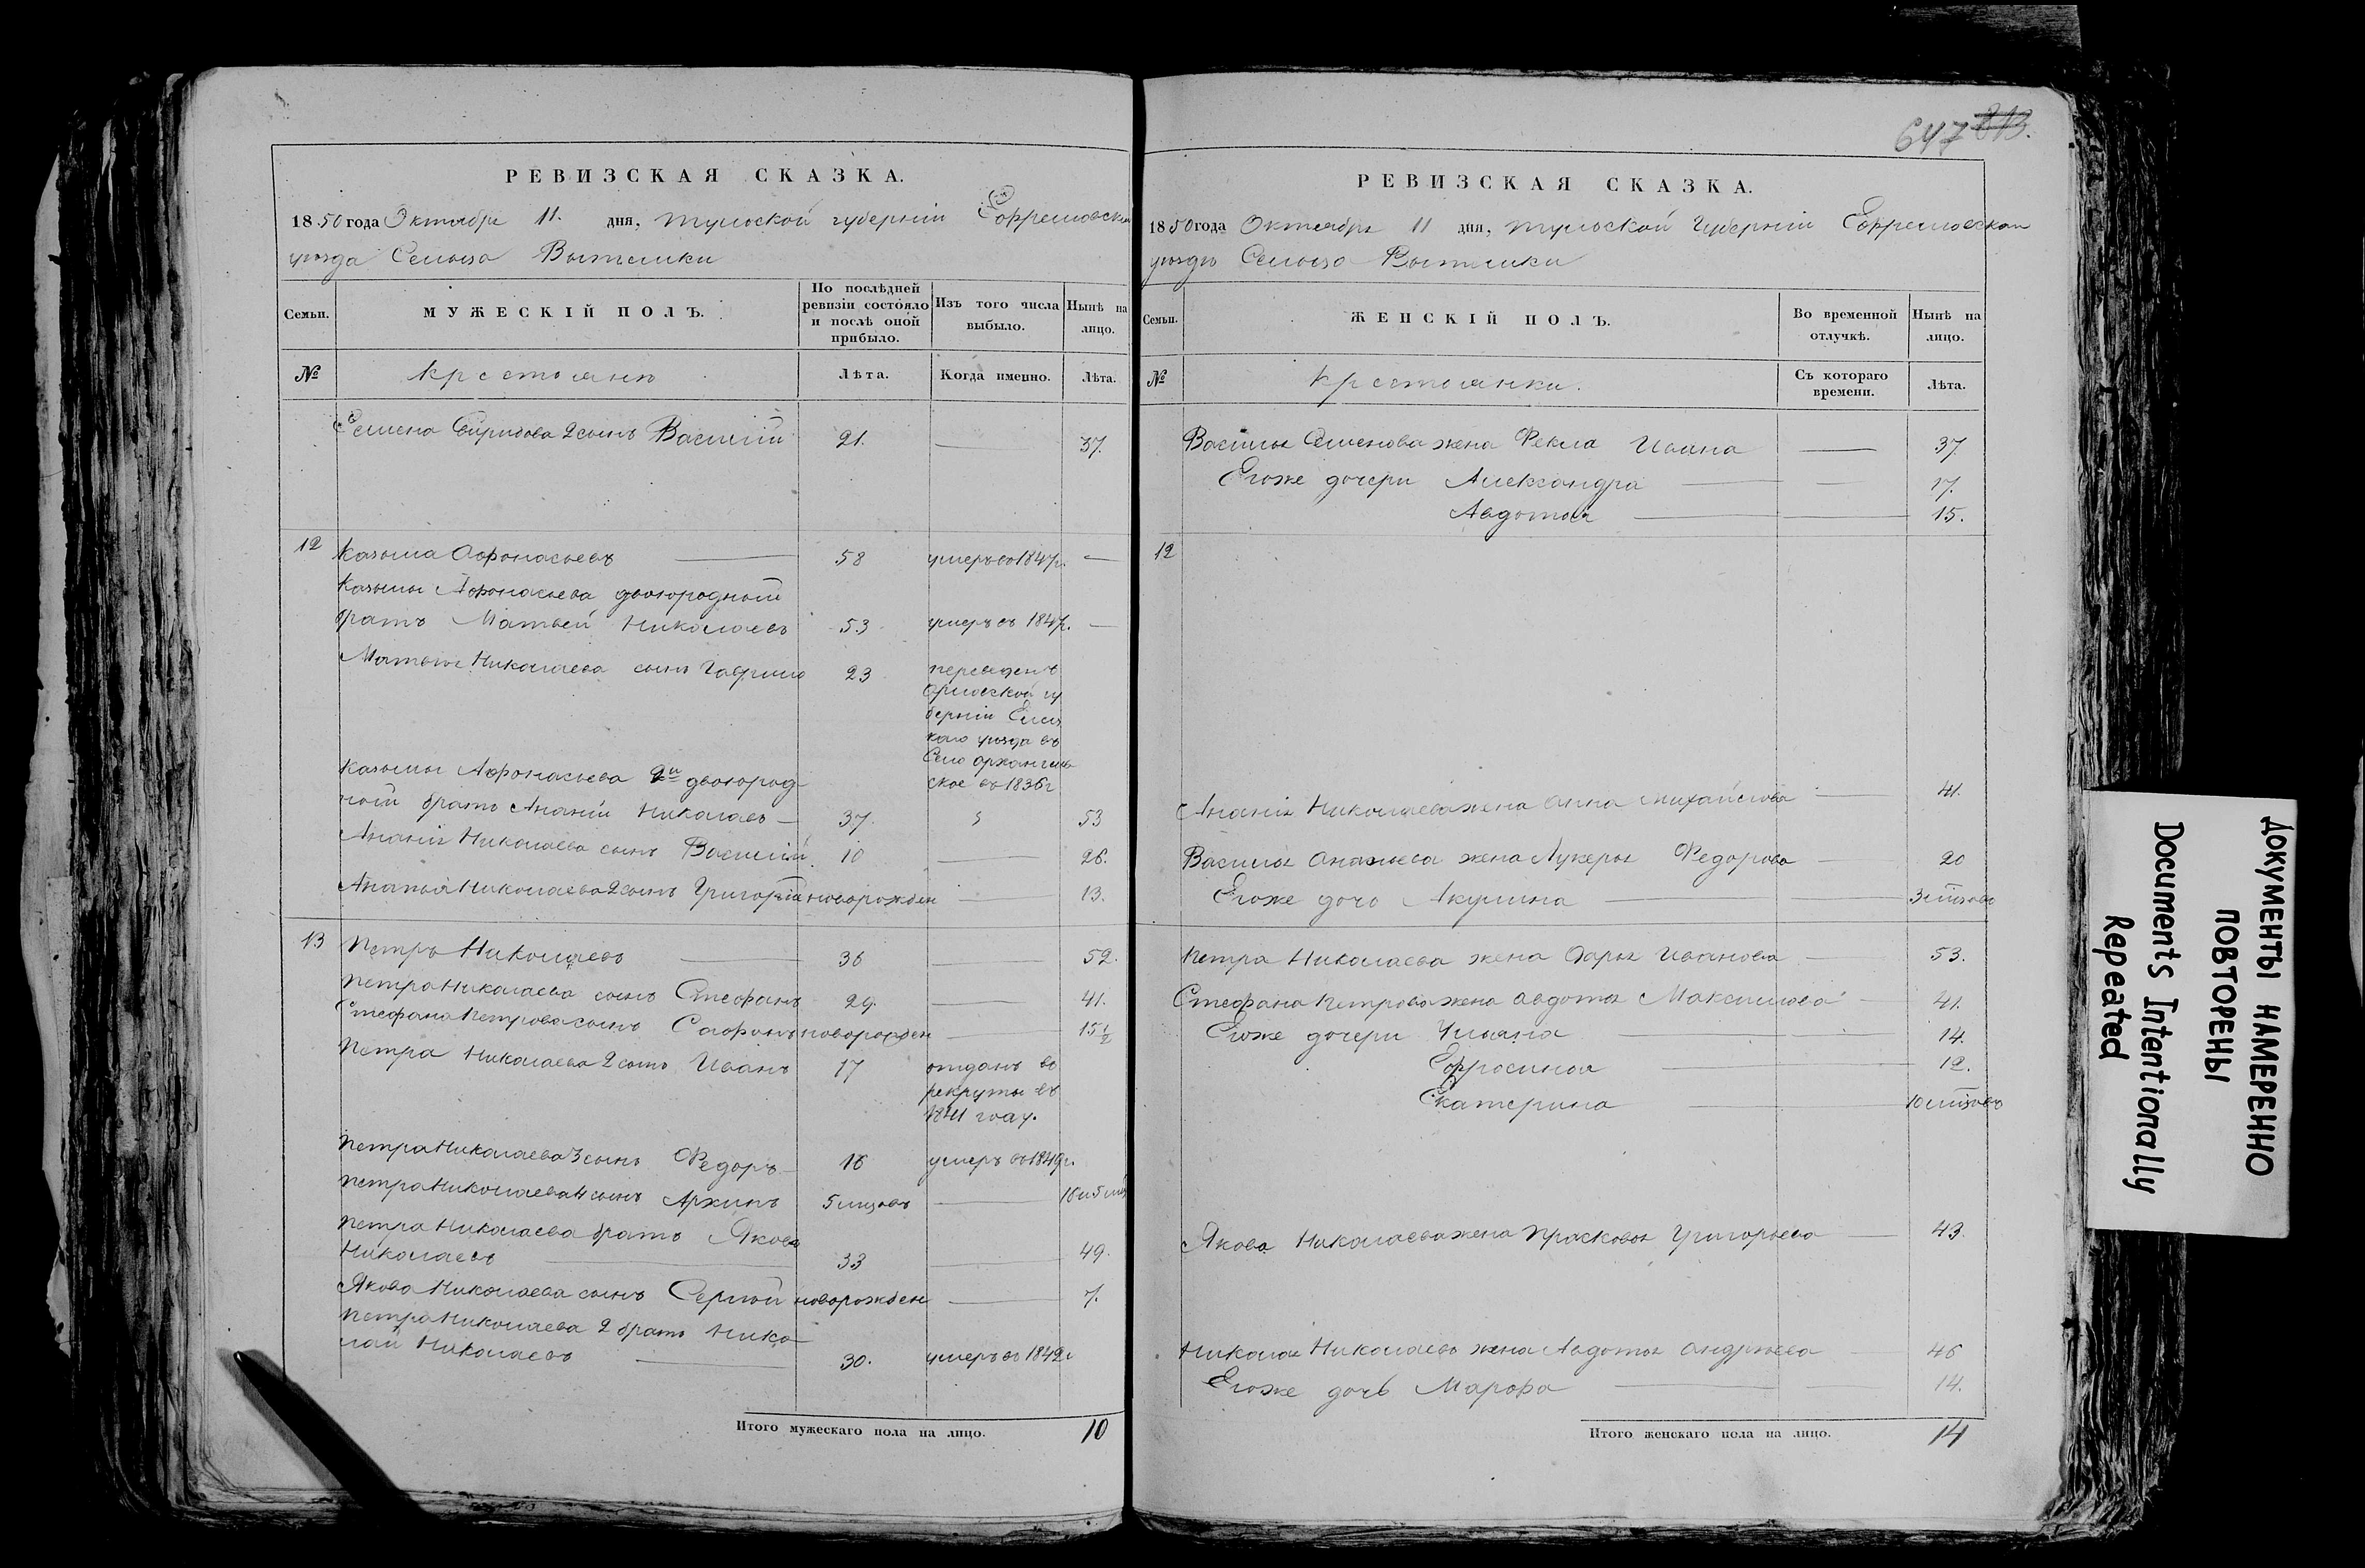 РЕВИЗСКАЯ СКАЗКА.
1850 года Октября 11. дня, Тульской губерніи Ефремовскаго
уѣзда Сельца
По послѣдней ревизіи состояло и послѣ оной прибыло.
Изъ того числа выбыло.
Нынѣ на лицо.
Семьи.
МУЖЕСКІЙ ПОЛЪ.
№
крестьяне
Лѣта.
Когда именно.
Лѣта.
Семена Спиридова 2 сынъ Василій 21. — 37.
12 Казьма Афонасьевъ — 58 умеръ въ 1847г. —
Казьмы Афонасьева двоюродный
братъ Матвей Николаевъ 53 умеръ въ 1847г. —
Матвея Николаева сынъ Гаврило 23 переведенъ
Орловской гу
берніи Елец
каго уѣзда въ
Село Архангель
ское въ 1836г
Казьмы Афонасьева 2й двоюрод
ной братъ Ананій Николаев — 37. 53
Ананія Николаева сынъ Василій 10 — 26.
Ананья Николаева 2 сынъ Григорій новорожден — 13.
13 Петръ Николаевъ — 36 — 52.
Петра Николаева сынъ Стефанъ 29. — 41.
Стефана Петрова сынъ Сафонъ новорожден — 15 1/2
Петра Николаева 2 сынъ Иванъ 17 отданъ въ
рекруты въ
1841 году.
Петра Николаева 3 сынъ Федоръ — 16 умеръ въ 1849г.
Петра Николаева 4 сынъ Архипъ 5 мцовъ — 16 и 5 мц
Петра Николаева братъ Яковъ
Николаевъ — 33 — 49.
Якова Николаева сынъ Сергей новорожден — 7.
Петра Николаева 2 братъ Нико
лай Николаевъ — 30. умеръ въ 1842г
Итого мужескаго пола на лицо. 10
647 813.
РЕВИЗСКАЯ СКАЗКА.
1850 года Октября 11 дня, Тульской Губерніи Ефремовскаго
уѣзда Сельца
Семьи.
ЖЕНСКІЙ ПОЛЪ.
Во временной отлучкѣ.
Нынѣ на лицо.
№
крестьянки.
Съ котораго времени.
Лѣта.
Василья Семенова жена Фекла Ивана — 37.
Егоже дочери Александра — 17.
Авдотья — 15.
12
Ананія Николаева жена Анна Михайлова — 41.
Василья Ананьева жена Лукерья Федорова — 20
Егоже дочь Акулина — 3 мцовъ
Петра Николаева жена Дарья Иванова — 53.
Стефана Петрова жена Авдотья Максимова — 41.
Егоже дочери Ульяна — 14.
Ефросинья — 12.
Екатерина — 10 мцовъ
Якова Николаева жена Прасковья Григорьева — 43.
Николая Николаева жена Авдотья Андреева — 46
Егоже дочь Марфа — 14.
Итого женскаго пола на лицо. 14
ДОКУМЕНТЫ НАМЕРЕННО
ПОВТОРЕНЫ
Documents Intentionally
Repeated